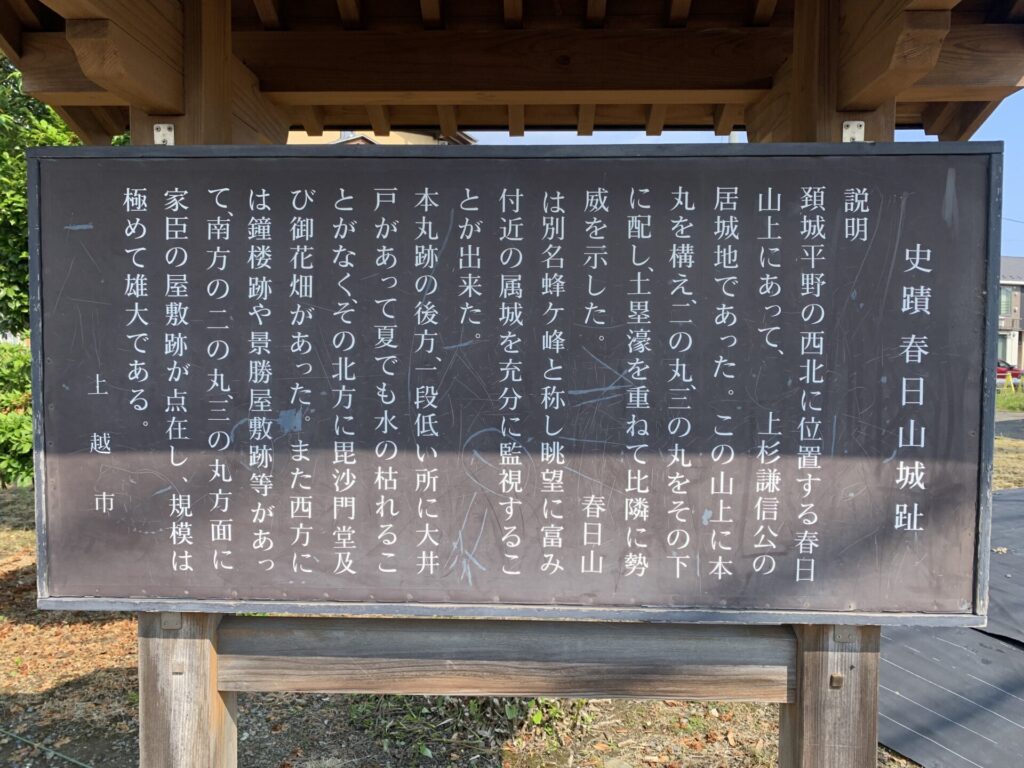 史蹟 春日山城趾
説明
頚城平野の西北に位置する春日
山上にあって、 上杉謙信公の
居城地であった。この山上に本
丸を構え、二の丸、三の丸をその下
に配し、土塁濠を重ねて比隣に勢
威を示した。 春日山
は別名蜂ケ峰と称し眺望に富み
付近の属城を充分に監視するこ
とが出来た。
本丸跡の後方、一段低い所に大井
戸があって夏でも水の枯れるこ
とがなく、その北方に毘沙門堂及
び御花畑があった。また西方に
は鐘楼跡や景勝屋敷跡等があっ
て、南方の二の丸、三の丸方面に
家臣の屋敷跡が点在し、規模は
極めて雄大である。
上越市